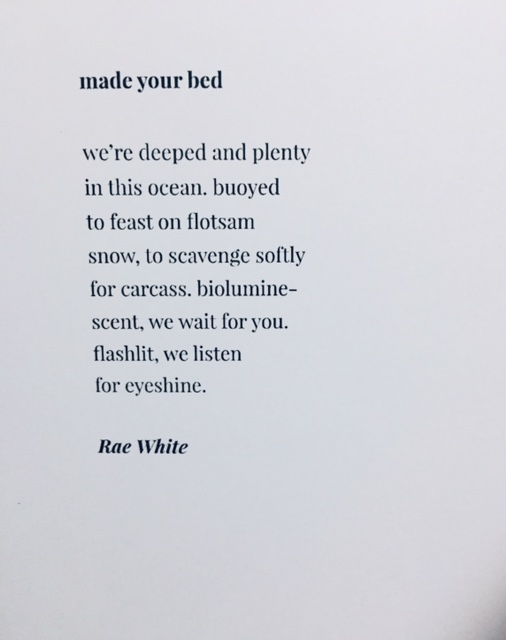 made your bed
we're deeped and plenty
in this ocean. buoyed
to feast on flotsam
snow, to scavenge softly
for carcass. biolumine-
scent, we wait for you.
flashlit, we listen
for eyeshine.
Rae White